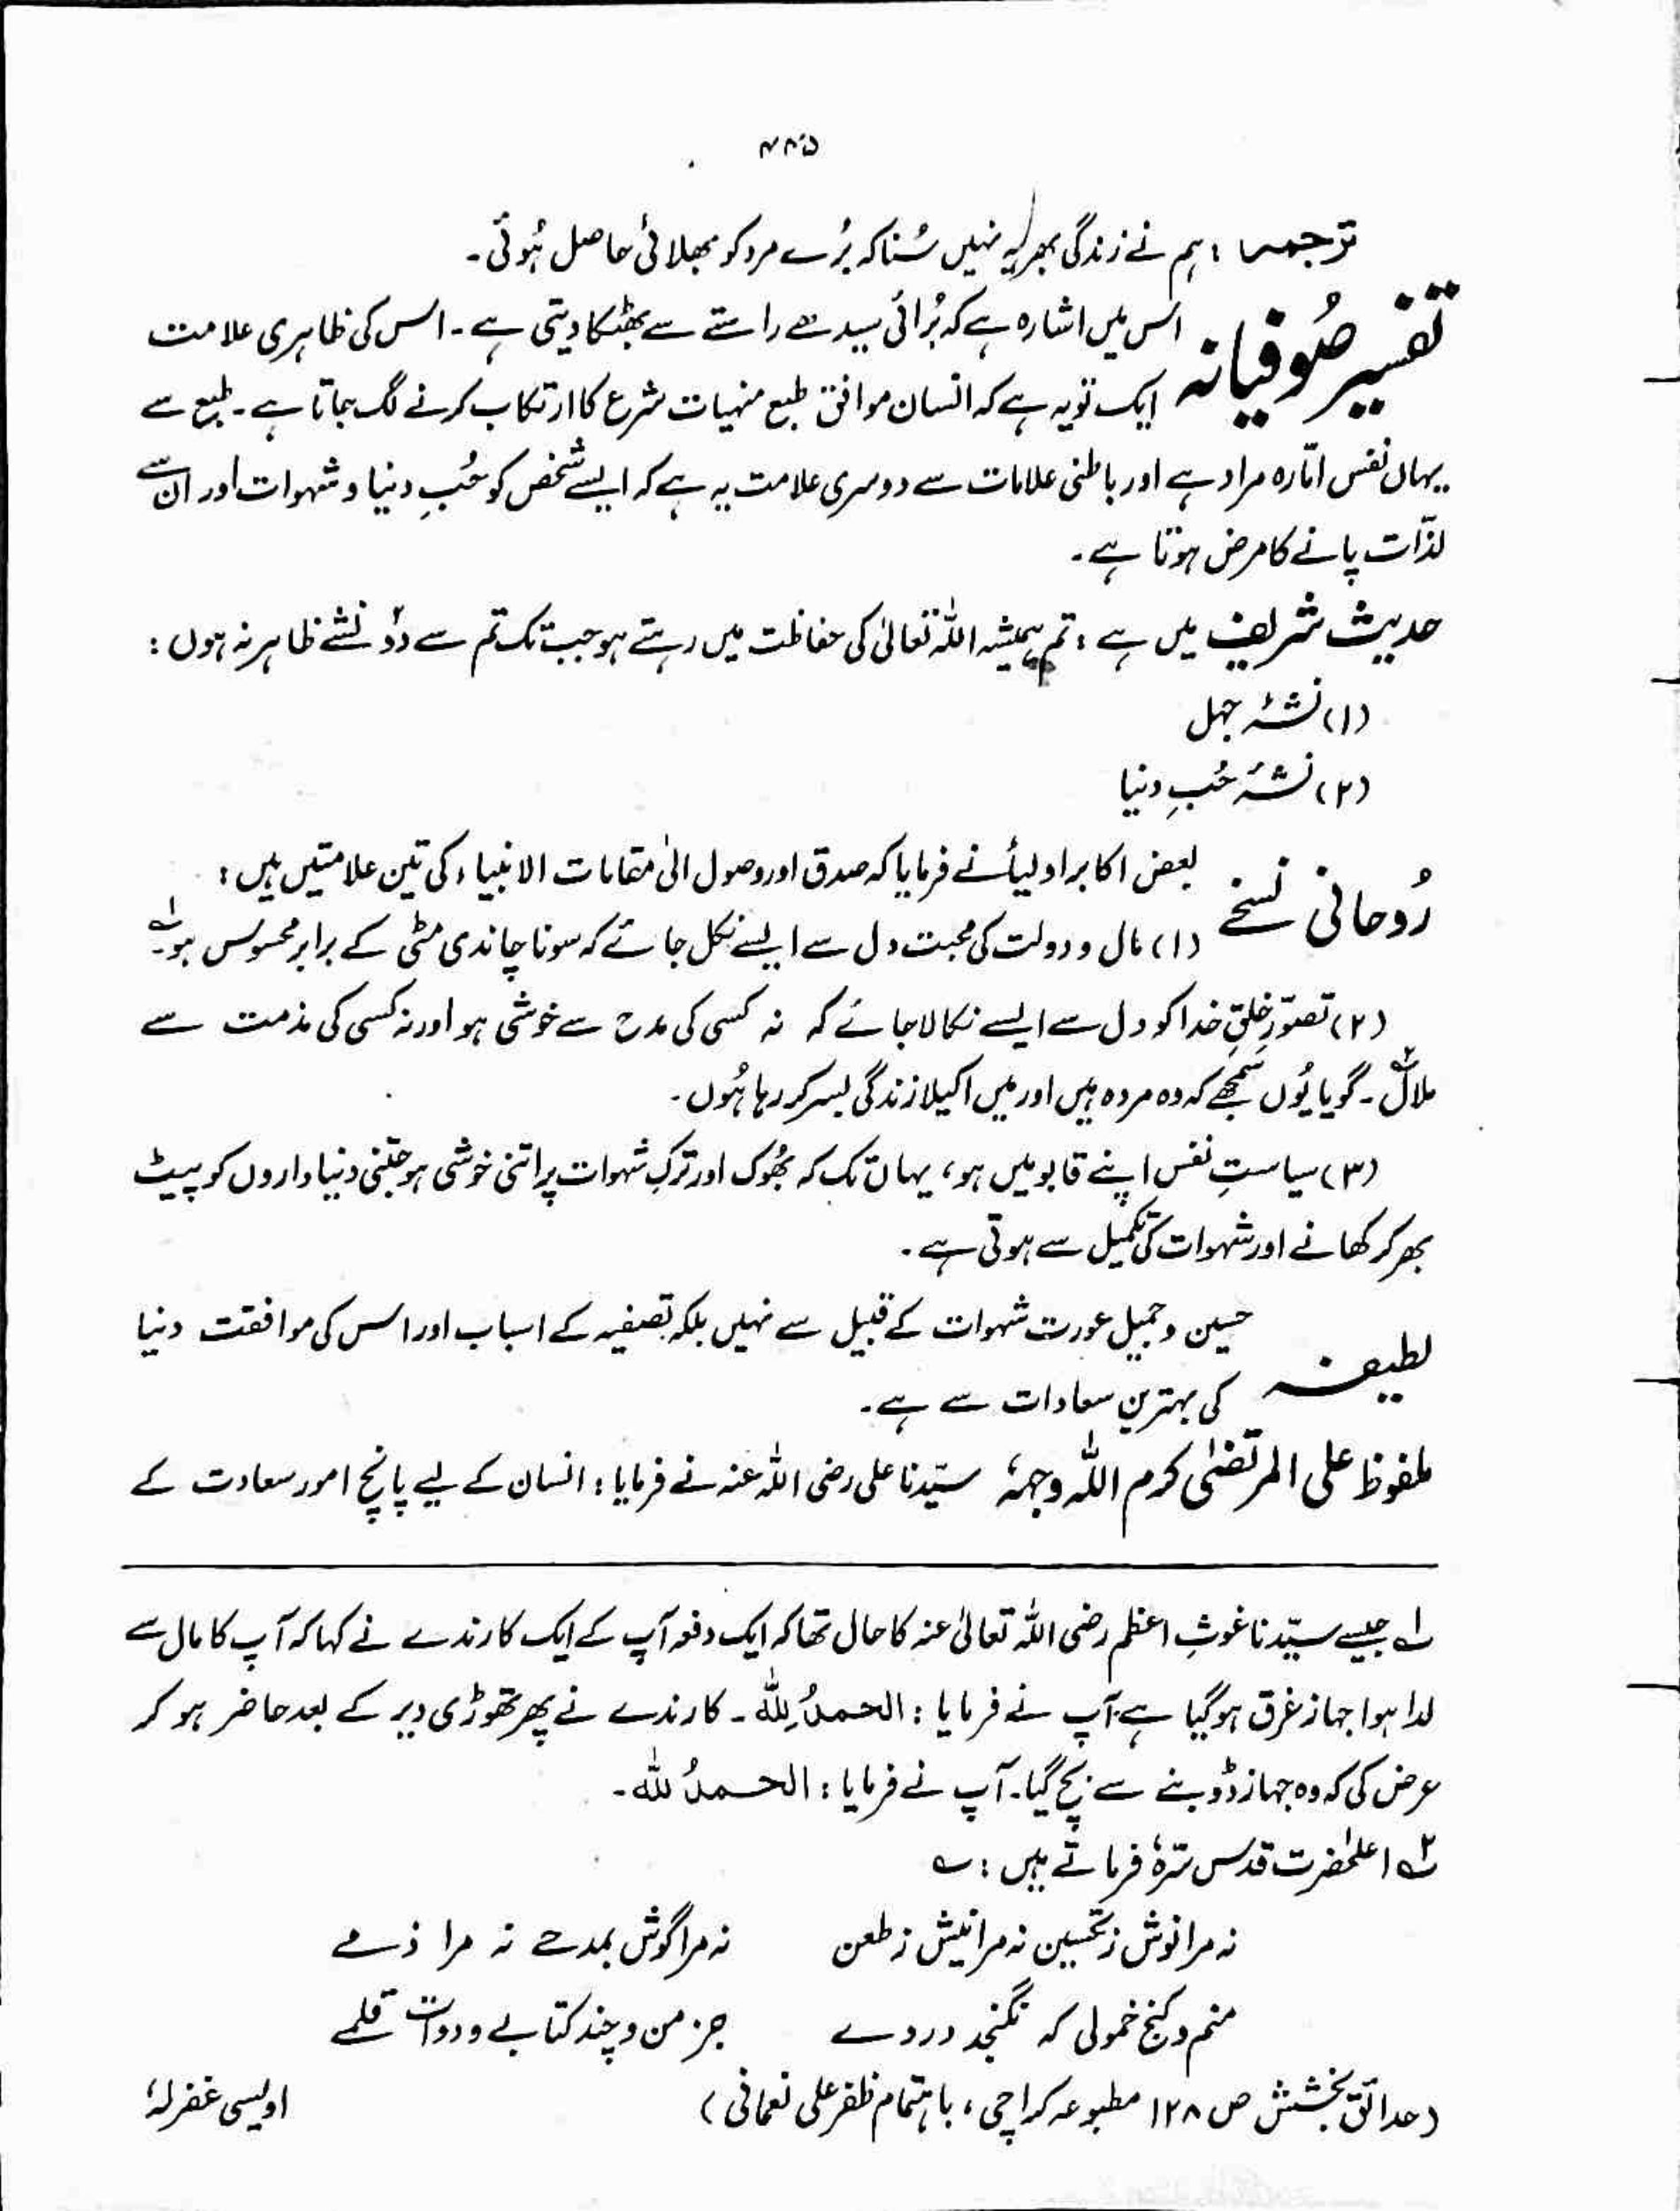 ۴۸۵
ترجمہ : ہم نے زندگی بھر یہ نہیں سُنا کہ بُرے مرد کو بھلائی حاصل ہُوئی۔
تفسیر صُوفیانہ اس میں اشارہ ہے کہ بُرائی سیدھے راستے سے بھٹکا دیتی ہے۔ اس کی ظاہری علامت
ایک تو یہ ہے کہ انسان موافق طبع منہیات شرع کا ارتکاب کرنے لگ جاتا ہے۔ طبع سے
یہاں نفس امّارہ مراد ہے اور باطنی علامات سے دوسری علامت یہ ہے کہ ایسے شخص کو حُبِ دنیا و شہوات اور ان سے
لذّات پانے کا مرض ہوتا ہے۔
حدیث شریف میں ہے : تم ہمیشہ اللہ تعالیٰ کی حفاظت میں رہتے ہو جب تک تم سے دو نشے ظاہر نہ ہوں :
(۱) نشۂ جہل
(۲) نشۂ حُبِ دنیا
رُوحانی نسخے بعض اکابر اولیأ نے فرمایا کہ صدق اور وصول الیٰ مقامات الانبیاء کی تین علامتیں ہیں :
(۱) مال و دولت کی محبت دل سے ایسے نکل جائے کہ سونا چاندی مٹی کے برابر محسوس ہو۔ ؎۱
(۲) تصوّرِ خلقِ خدا کو دل سے ایسے نکالا جائے کہ نہ کسی کی مدح سے خوشی ہو اور نہ کسی کی مذمت سے
ملال ؎۲۔ گویا یُوں سمجھے کہ وہ مردہ ہیں اور میں اکیلا زندگی بسر کر رہا ہُوں۔
(۳) سیاستِ نفس اپنے قابو میں ہو، یہاں تک کہ بھُوک اور ترکِ شہوات پر اتنی خوشی ہو جتنی دنیا داروں کو پیٹ
بھر کر کھانے اور شہوات کی تکمیل سے ہوتی ہے۔
لطیفہ حسین و جمیل عورت شہوات کے قبیل سے نہیں بلکہ تصفیہ کے اسباب اور اس کی موافقت دنیا
کی بہترین سعادات سے ہے۔
ملفوظ علی المرتضٰی کرم اللہ وجہہٗ سیّدنا علی رضی اللہ عنہ نے فرمایا : انسان کے لیے پانچ امور سعادت کے
؎۱ جیسے سیّدنا غوثِ اعظم رضی اللہ تعالیٰ عنہ کا حال تھا کہ ایک دفعہ آپ کے ایک کارندے نے کہا کہ آپ کا مال سے
لدا ہوا جہاز غرق ہو گیا ہے، آپ نے فرمایا : الحمدُ للہ۔ کارندے نے پھر تھوڑی دیر کے بعد حاضر ہو کر
عرض کی کہ وہ جہاز ڈوبنے سے بچ گیا۔ آپ نے فرمایا : الحمدُ للہ۔
؎۲ اعلیٰحضرت قدس سرّہٗ فرماتے ہیں : ؎
نہ مرا نوش ز تحسین نہ مرا نیش ز طعن نہ مرا گوش بمدحے نہ مرا ذمے
منم و کنج خمولی کہ نگنجد دروے جز من و چند کتابے و دوات قلمے
(حدائق بخشش ص ۱۲۸ مطبوعہ کراچی، باہتمام ظفر علی نعمانی) اویسی غفرلہٗ